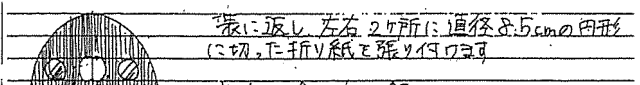 裏に返し、左右2ヶ所に直径8.5cmの円形
に切った折り紙を張り付けます